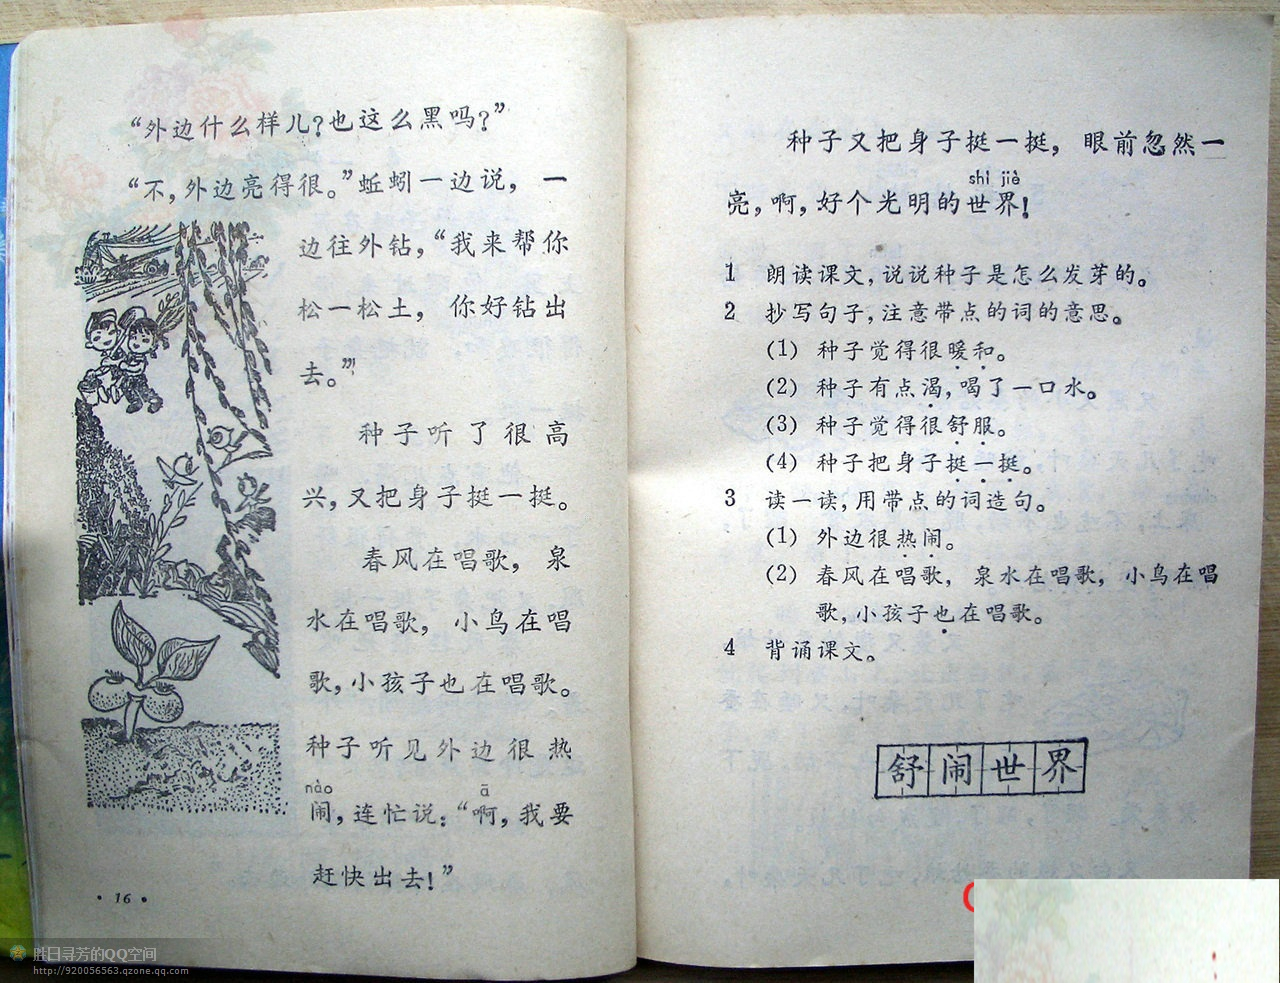 “外边什么样儿?也这么黑吗?”
“不,外边亮得很。”蚯蚓一边说，一
边往外钻,“我来帮你
松一松土，你好钻出
去。”
种子听了很高
兴,又把身子挺一挺。
春风在唱歌，泉
水在唱歌，小鸟在唱
歌,小孩子也在唱歌。
种子听见外边很热
nào ā
闹,连忙说:“啊,我要
赶快出去!”
· 16 ·
种子又把身子挺一挺，眼前忽然一
shì jiè
亮,啊,好个光明的世界!
1 朗读课文,说说种子是怎么发芽的。
2 抄写句子,注意带点的词的意思。
(1) 种子觉得很暖和。
(2) 种子有点渴,喝了一口水。
(3) 种子觉得很舒服。
(4) 种子把身子挺一挺。
3 读一读,用带点的词造句。
(1) 外边很热闹。
(2) 春风在唱歌，泉水在唱歌，小鸟在唱
歌,小孩子也在唱歌。
4 背诵课文。
舒闹世界
胜日寻芳的QQ空间
http://920056563.qzone.qq.com